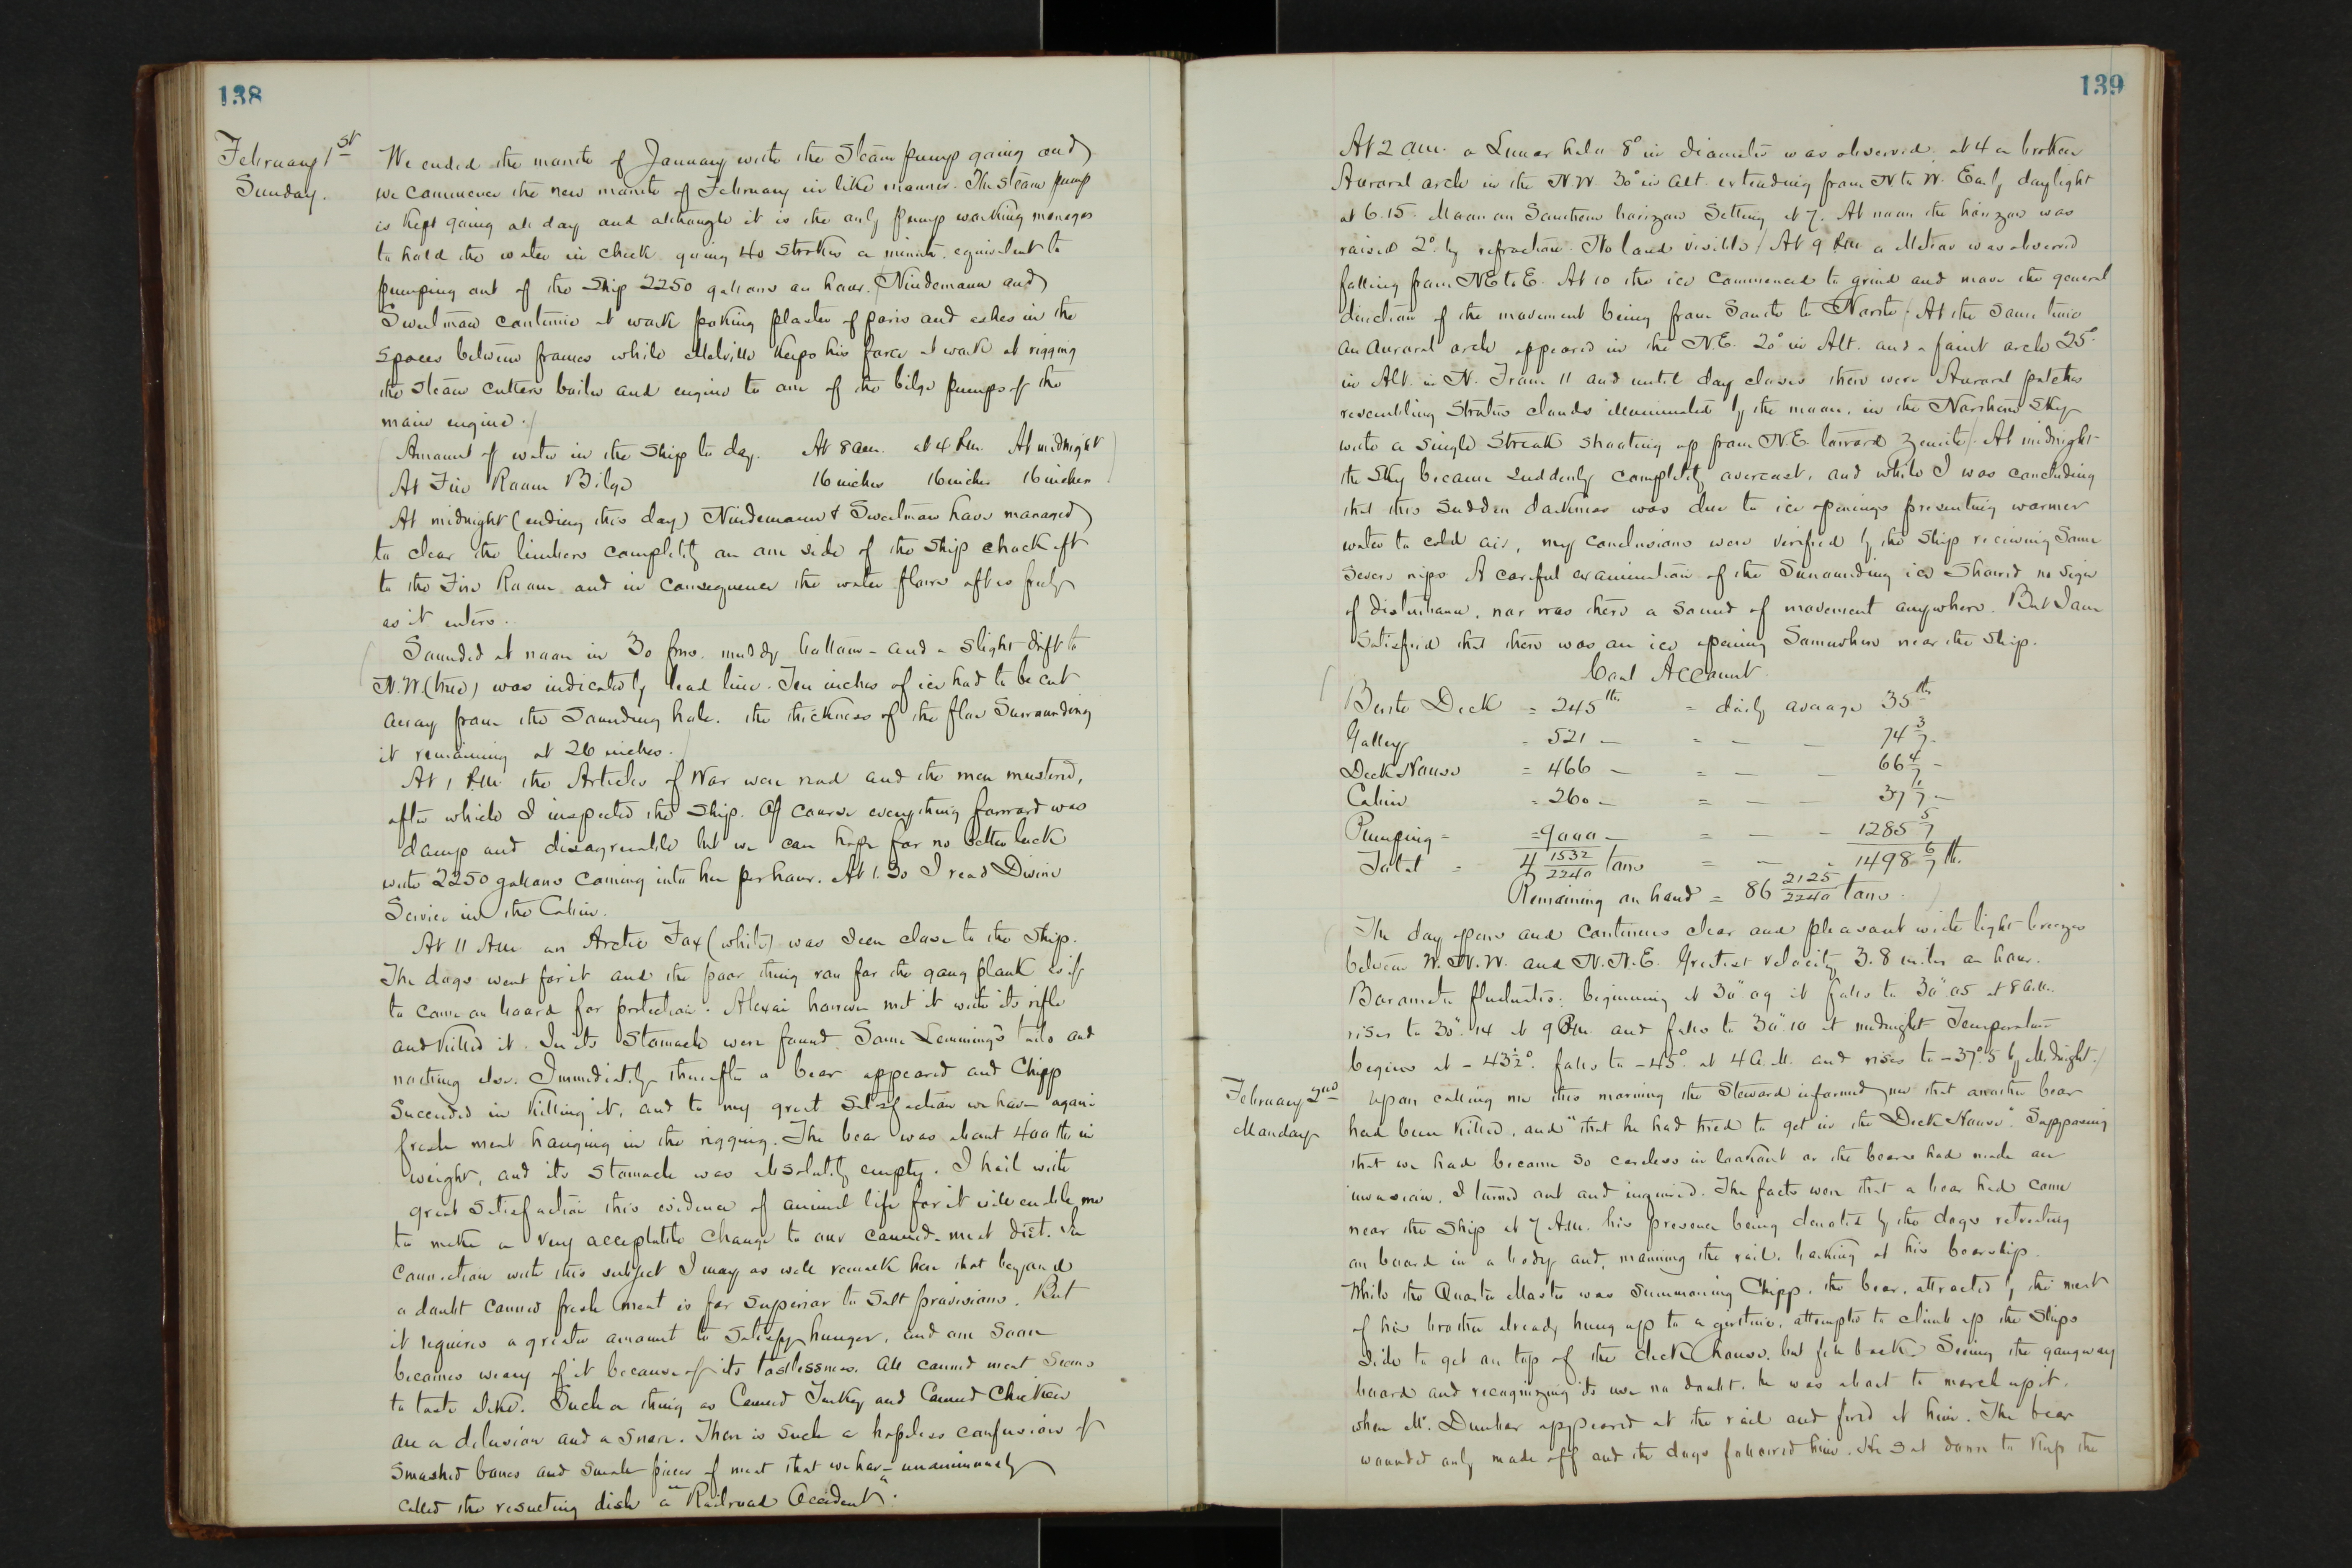 138
February 1st
Sunday.
We ended the month of January with the Steam pump going and
we commence the new month of February in like manner. The steam pump
is kept going all day and although it is the only pump working manages
to hold the water in check going 40 strokes a minute, equivalent to
pumping out of the Ship 2250 gallons an hour. Nindemann and
Sweetman continue at work poking plaster of paris and ashes in the
spaces between frames while Melville keeps his force at work at rigging
the steam cutters boiler and engine to one of the bilge pumps of the
main engine.
Amount of water in the ship to day. At 8 am. at 4 P.m. At midnight
At Fire Room Bilge 16 inches 16 inches 16 inches
At midnight (ending this day) Nindemann & Sweetman have managed
to clear the limbers completely on one side of the ship chock aft
to the Fire Room and in consequence the water flows aft as freely
as it enters.
Sounded at noon in 30 fms. muddy bottom - and a slight drift to
N.W (true) was indicated by lead line. Ten inches of ice had to be cut
away from the sounding hole. the thickness of the floe surrounding
it remaining at 26 inches.
At 1 P.m the Articles of War were read and the men mustered,
after which I inspected the ship. Of course everything forward was
damp and disagreeable but we can hope for no better luck
with 2250 gallons coming into her per hour. At 1.30 I read Divine
Service in the Cabin.
At 11 A.m an Arctic Fox (white) was seen close to the ship.
The dogs went for it and the poor thing ran for the gang plank as if
to come on board for protection. Alexai however met it with its rifle
and killed it. In its stomach were found some Lemming's tails and
nothing else. Immediately thereafter a bear appeared and Chipp
succeeded in killing it, and to my great satisfaction we have again
fresh meat hanging in the rigging. The bear was about 400 lbs in
weight, and its stomach was absolutely empty. I hail with
great satisfaction this evidence of animal life for it will enable me
to make a very acceptable change to our canned-meat diet. In
connection with this subject I may as well remark here that beyond
a doubt canned fresh meat is far superior to salt provisions. But
it requires a greater amount to satisfy hunger, and one soon
becomes weary of it because of its tastlessness. All canned meat seems
to taste alike. Such a thing as Canned Turkey and Canned Chicken
are a delusion and a snare. There is such a hopeless confusion of
smashed bones and small pieces of meat that we have unanimously
called the resulting dish a "Railroad Accident".
139
At 2 am. a Lunar halo 8° in diameter was observed. at 4 a broken
Auroral arch in the N.W. 30° in alt. extending from N to W. Early daylight
at 6.15. Moon on Southern horizon setting at 7. At noon the horizon was
raised 2° by refraction. No land visible. At 9 P.m a Meteor was observed
falling from NE to E. At 10 the ice commenced to grind and move the general
direction of the movement being from South to North. At the same time
an auroral arch appeared in the N.E. 20° in Alt. and a faint arch 25°
in Alt. in N. From 11 and until day closes there were Auroral patches
resembling Stratus clouds illuminated by the moon, in the Northern Sky
with a single streak shooting up from N.E. toward Zenith. At midnight
the sky became suddenly completely overcast, and while I was concluding
that this sudden darkness was due to ice openings presenting warmer
water to cold air, my conclusions were verified by the ship receiving some
severe nips. A careful examination of the surrounding ice showed no sign
of disturbance, nor was there a sound of movement anywhere. But I am
satisfied that there was an ice opening somewhere near the ship.
Coal Account
Berth Deck = 245 lbs = daily average 35 lbs
Galley - 521 - = - - 74 3/7 -
Deck House = 466 - = - - 66 4/7 -
Cabin - 260 - = - - 37 1/7 -
Pumping = =9000 - = - - 1285 5/7
Total = 4 1532/2240 tons = - - 1498 6/7 lbs.
Remaining on hand = 86 2125/2240 tons.
The day opens and continues clear and pleasant with light breezes
between W.N.W. and N.N.E. Greatest velocity 3.8 miles an hour.
Barometer fluctuates: beginning at 30".09 it falls to 30".05 at 8 a.m.
rises to 30".14 at 9 P.m. and falls to 30".10 at midnight Temperature
begins at - 43½°. falls to - 45° at 4 A.M. and rises to - 37°.5 by Midnight.
February 2nd
Monday
Upon calling me this morning the Steward informed me that another bear
had been killed, and "that he had tried to get in the Deck House". Supposing
that we had become so careless in lookout as the bears had made an
invasion, I turned out and inquired. The facts were that a bear had come
near the ship at 7 A.m. his presence being denoted by the dogs retreating
on board in a body and, manning the rail, barking at his bearship.
While the Quarter Master was summoning Chipp, the bear, attracted by the meat
of his brother already hung up to a girtline, attempted to climb up the ships
side to get on top of the deck house, but fell back. Seeing the gangway
board and recognizing its use no doubt, he was about to march up it,
when Mr. Dunbar appeared at the rail and fired at him. The bear
wounded only made off and the dogs followed him. He sat down to keep the